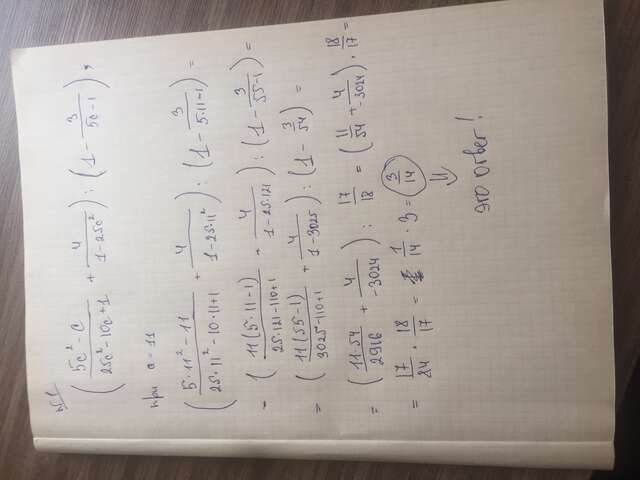 №1
( (5c² - c)/(25c² - 10c + 1) + 4/(1 - 25c²) ) : ( 1 - 3/(5c - 1) ),
при a = 11
( (5·11² - 11)/(25·11² - 10·11 + 1) + 4/(1 - 25·11²) ) : ( 1 - 3/(5·11 - 1) ) =
= ( 11(5·11 - 1)/(25·121 - 110 + 1) + 4/(1 - 25·121) ) : ( 1 - 3/(55 - 1) ) =
= ( 11(55 - 1)/(3025 - 110 + 1) + 4/(1 - 3025) ) : ( 1 - 3/54 ) =
= ( 11·54/2916 + 4/-3024 ) : 17/18 = ( 11/54 + 4/-3024 ) · 18/17 =
= 17/84 · 18/17 = 1/14 · 3 = 3/14
это ответ!